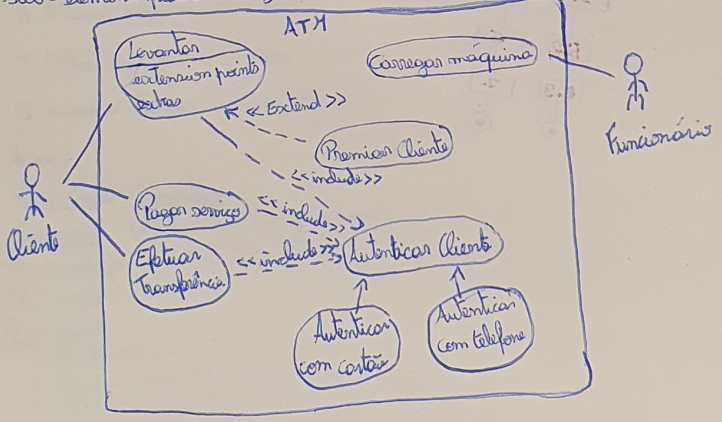 ATM
Levantar
extension points
extras
Carregar máquina
<<Extend>>
Premiar Cliente
Funcionário
<<include>>
Pagar serviço
<<include>>
Cliente
Efetuar
Transferência
<<include>>
Autenticar Cliente
Autenticar
com cartão
Autenticar
com telefone